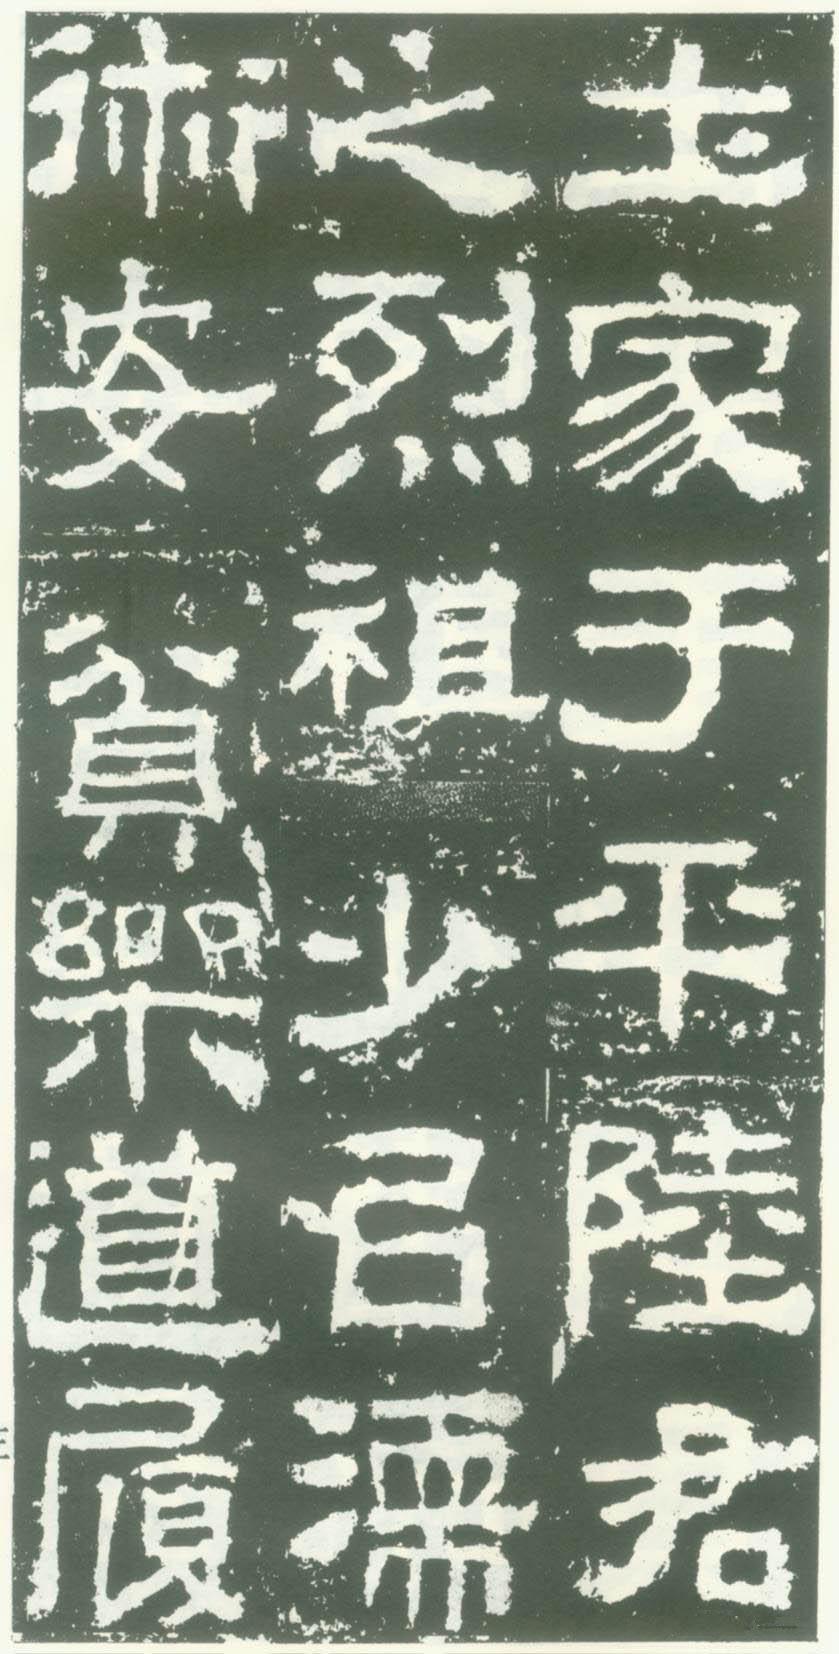 圡家于平陸君
之烈祖少㠯濡
術安貧樂道履